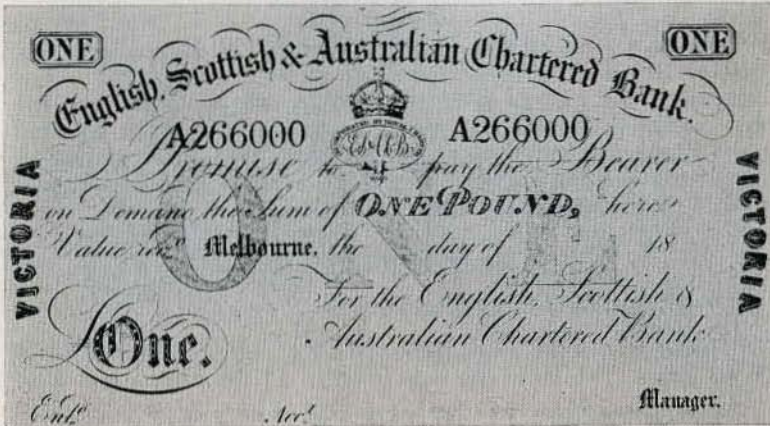 ONE ONE
English, Scottish & Australian Chartered Bank.
A266000 A266000
I Promise to pay the Bearer
on Demand the Sum of ONE POUND, here
Value rec.d Melbourne. the day of 18
ONE
For the English, Scottish &
Australian Chartered Bank
One.
VICTORIA
VICTORIA
Ent.d Acc.t Manager.